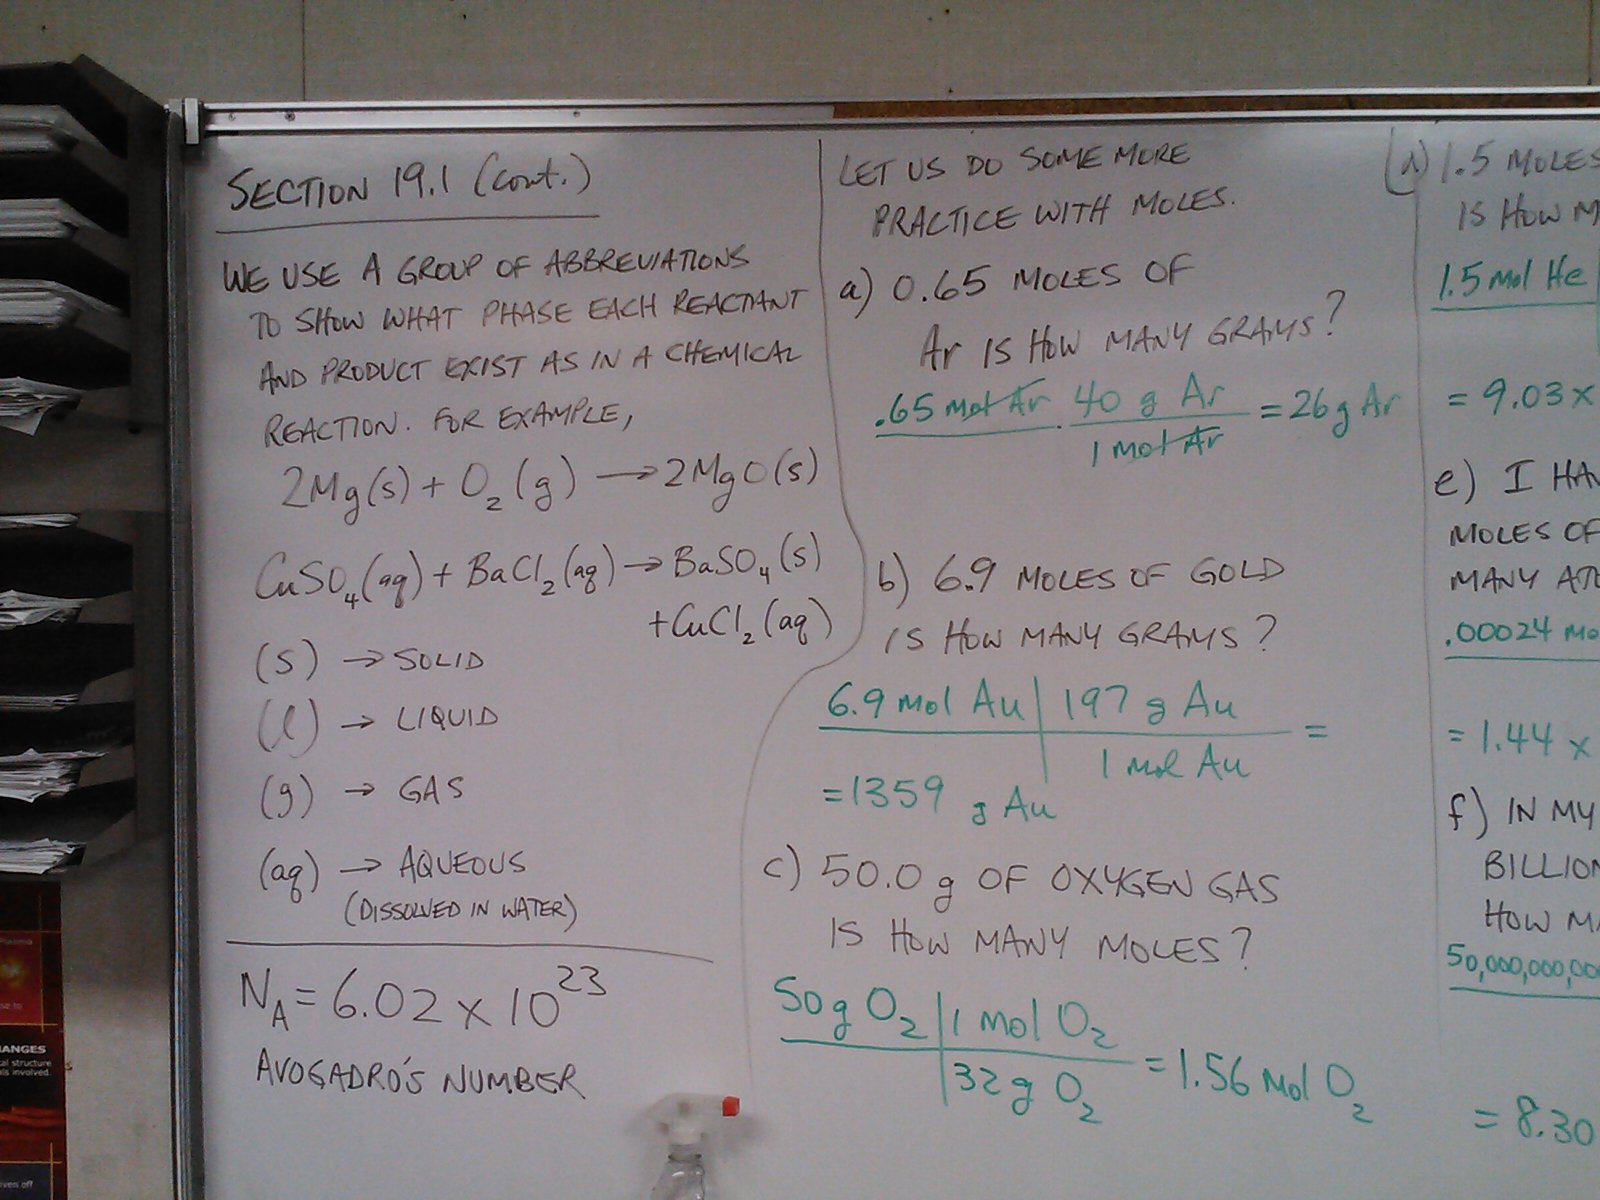 SECTION 19.1 (cont.)
WE USE A GROUP OF ABBREVIATIONS
TO SHOW WHAT PHASE EACH REACTANT
AND PRODUCT EXIST AS IN A CHEMICAL
REACTION. FOR EXAMPLE,
2Mg(s) + O₂(g) → 2MgO(s)
CuSO₄(aq) + BaCl₂(aq) → BaSO₄(s)
+ CuCl₂(aq)
(s) → SOLID
(l) → LIQUID
(g) → GAS
(aq) → AQUEOUS
(DISSOLVED IN WATER)
N_A = 6.02 x 10²³
AVOGADRO'S NUMBER
LET US DO SOME MORE
PRACTICE WITH MOLES.
a) 0.65 MOLES OF
Ar IS HOW MANY GRAMS?
.65 mol Ar · 40 g Ar = 26 g Ar
1 mol Ar
b) 6.9 MOLES OF GOLD
IS HOW MANY GRAMS?
6.9 mol Au | 197 g Au =
1 mol Au
= 1359 g Au
c) 50.0 g OF OXYGEN GAS
IS HOW MANY MOLES?
50g O₂ | 1 mol O₂
32 g O₂ = 1.56 mol O₂
1.5 MOLES
IS HOW M
1.5 mol He
= 9.03 x
e) I HAV
MOLES OF
MANY ATO
.00024 mo
= 1.44 x
f) IN MY
BILLION
HOW MA
50,000,000,00
= 8.30
Plasma
se to
ANGES
al structure
is involved.
iven off